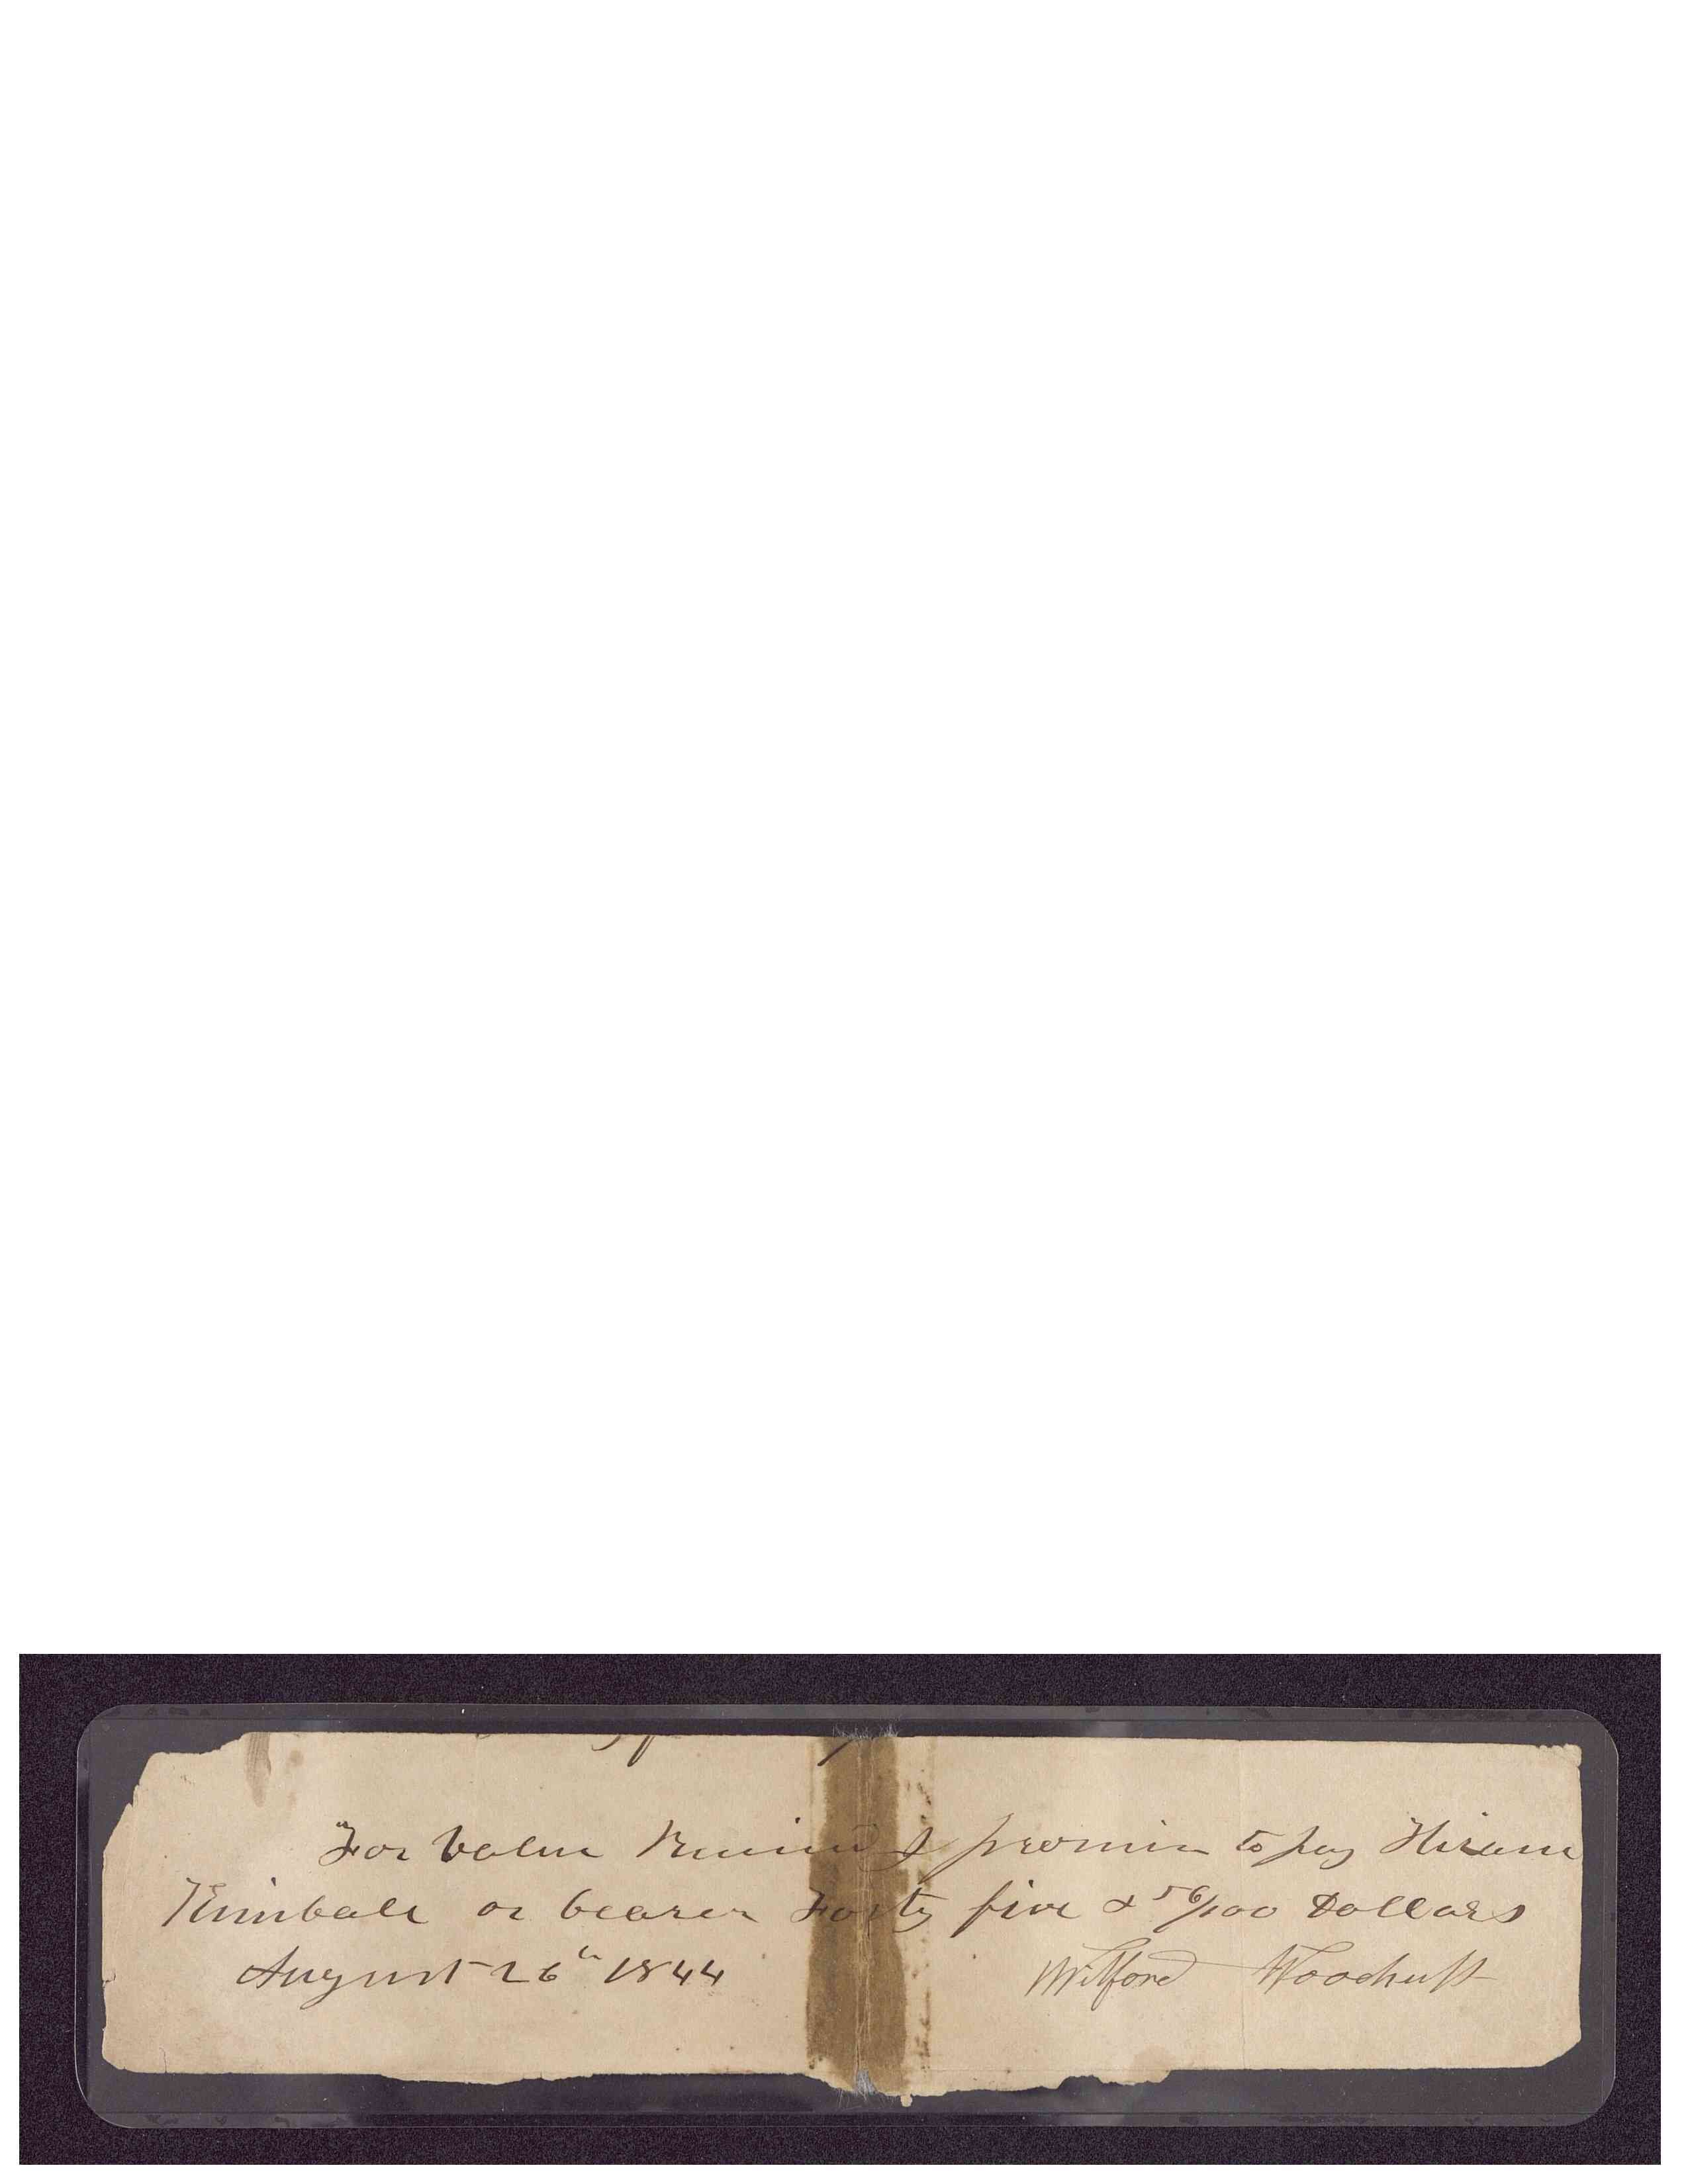 For Value Received I promise to pay Hiram
Kimball or bearer Forty five & 56/100 Dollars
August 26th 1844 Wilford Woodruff